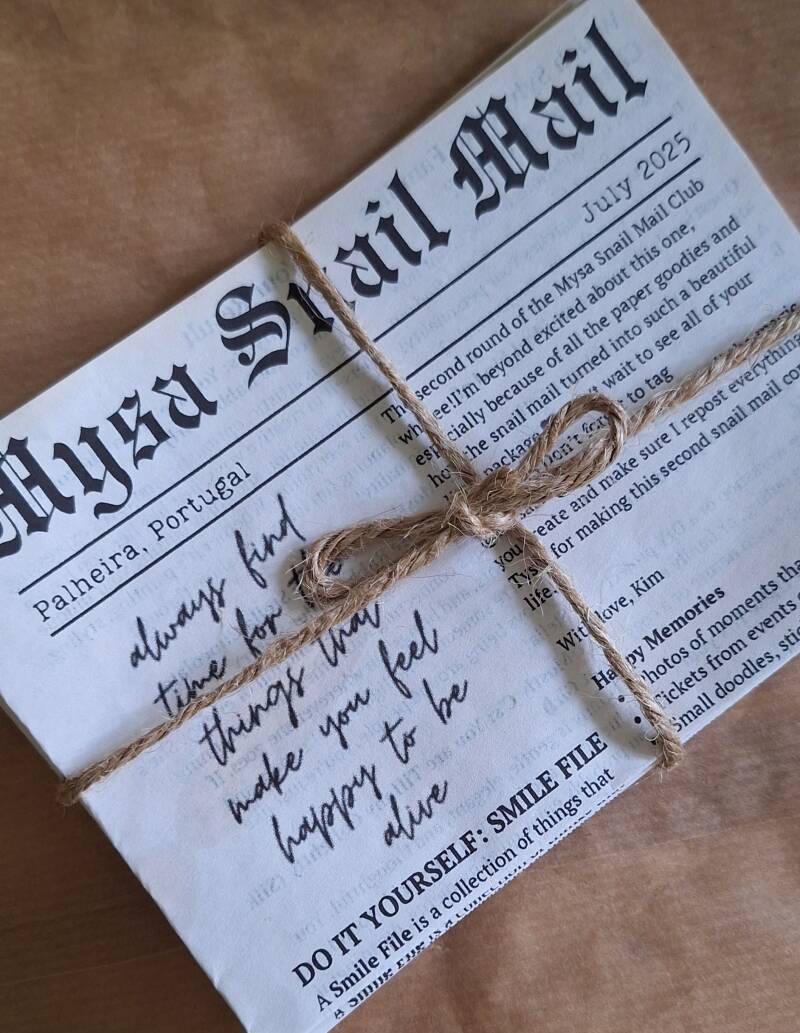 Mysa Snail Mail
July 2025
Palheira, Portugal
always find
time for the
things that
make you feel
happy to be
alive
The second round of the Mysa Snail Mail Club
I'm beyond excited about this one,
especially because of all the paper goodies and
how the snail mail turned into such a beautiful
package wait to see all of your
to tag
you create and make sure I repost everything
for making this second snail mail
life.
With love, Kim
Happy Memories
• Photos of moments
• Tickets from events
Small doodles,
DO IT YOURSELF: SMILE FILE
A Smile File is a collection of things that